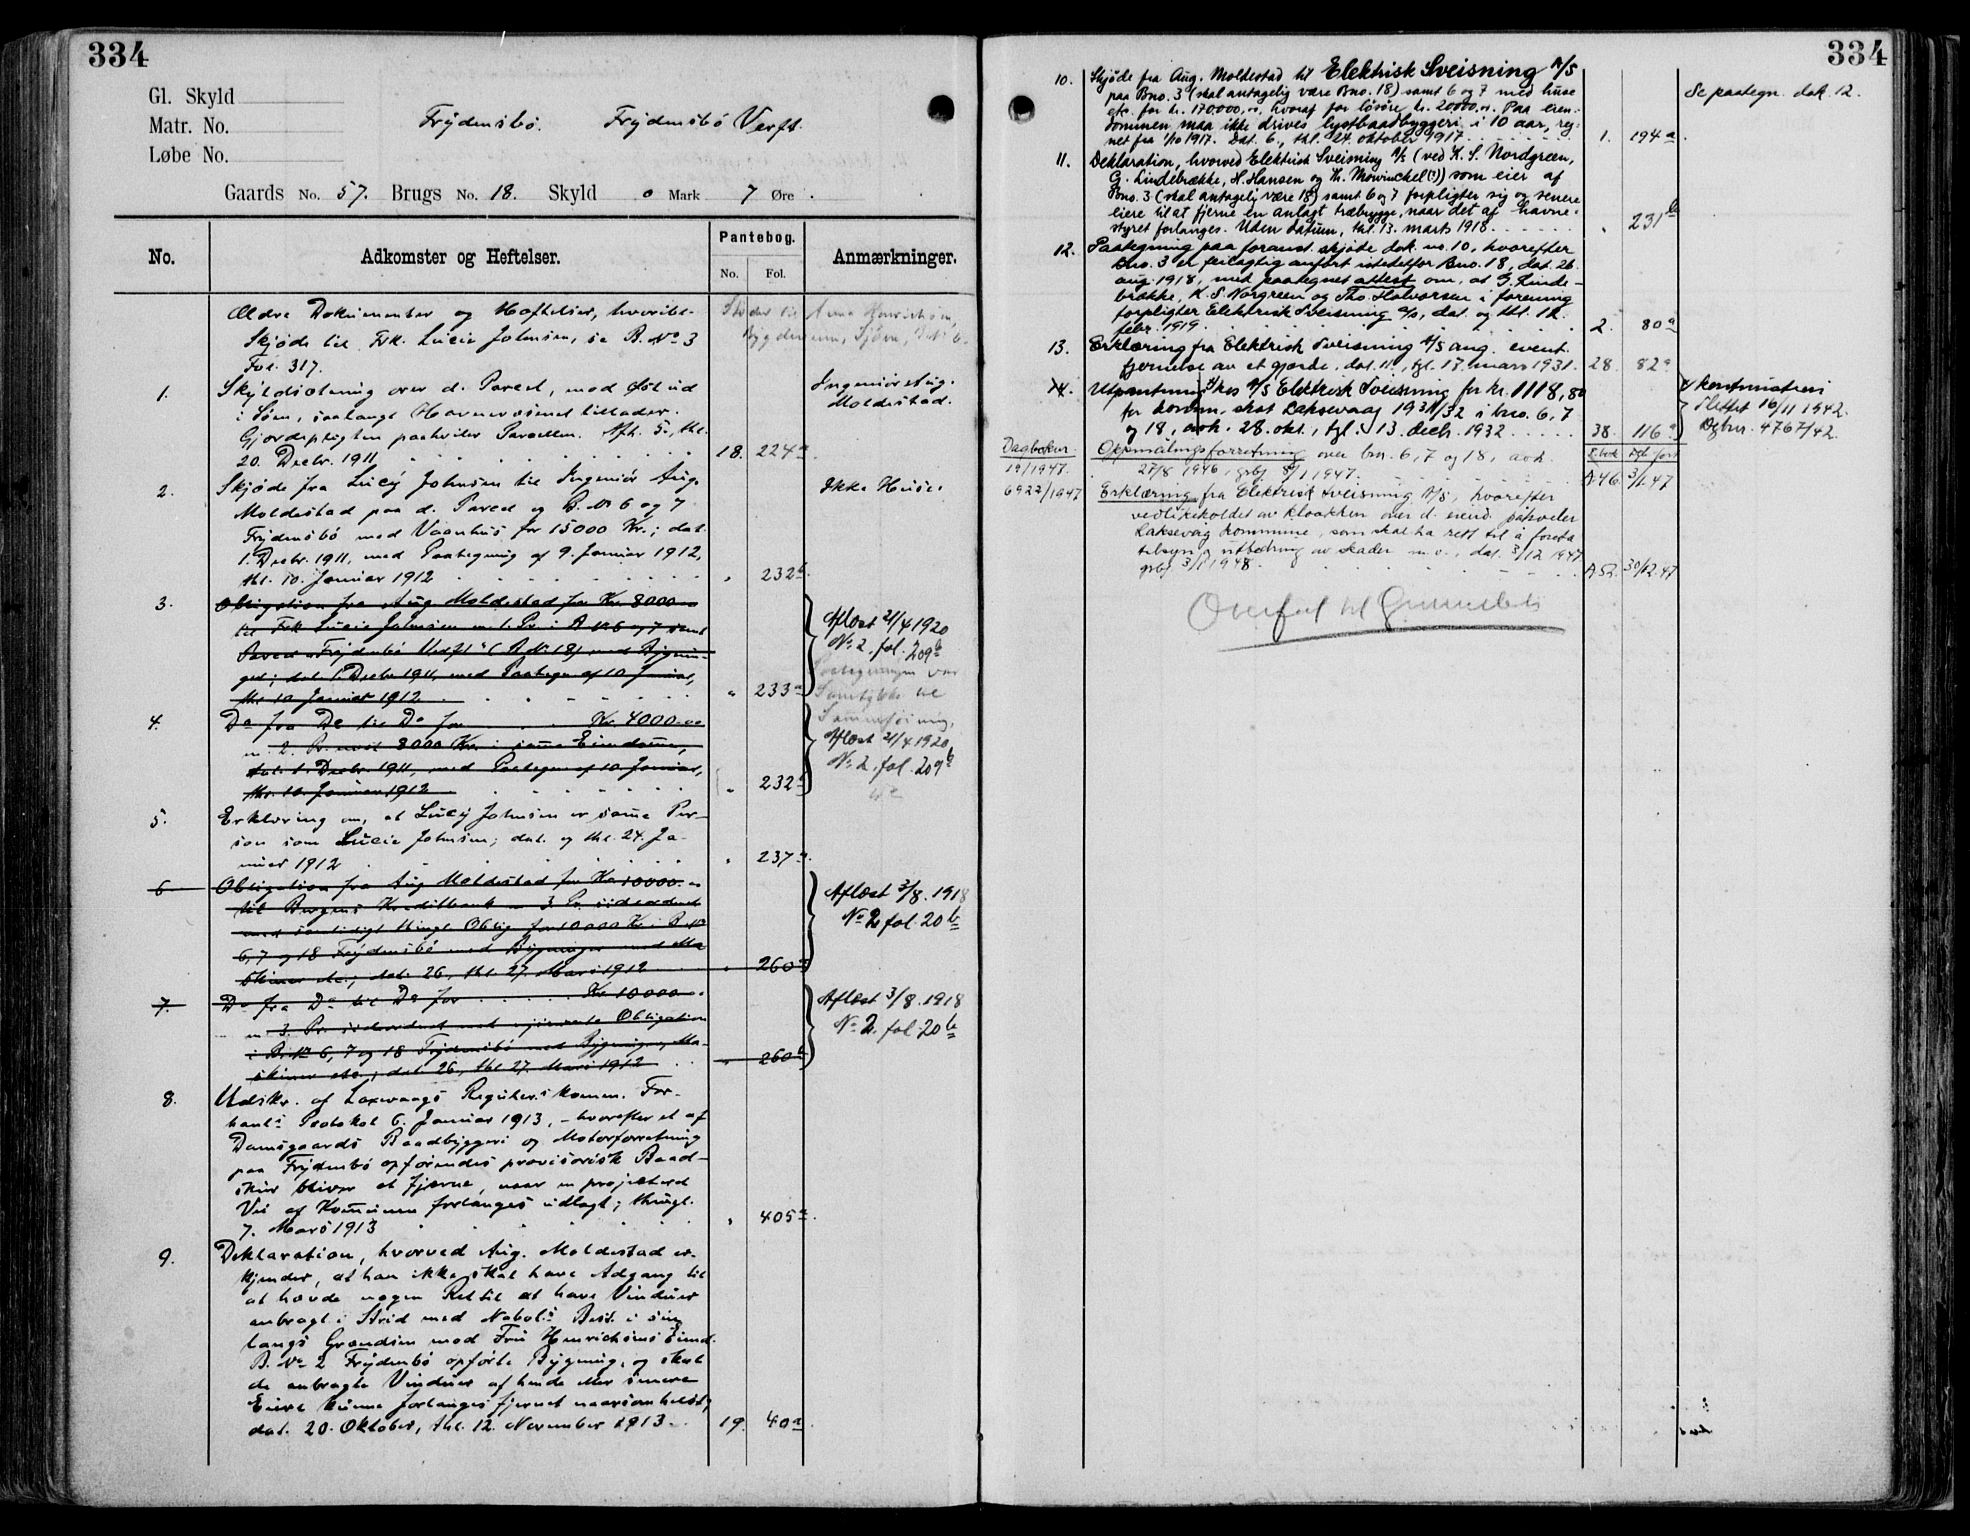 334
Gl. Skyld
Matr. No.
Løbe No.
Frydensbö. Frydensbö Verft.
Gaards No. 57. Brugs No. 18. Skyld 0 Mark 7 Øre.
No.
Adkomster og Heftelser.
Pantebog.
No. Fol.
Anmærkninger.
Ældre Dokumenter og Heftelser, hvoribl.
Skjöde til Frk. Lucie Johnsen, se B. No 3
Fol. 317.
1. Skyldsætning over d. Parcel, med
i Söen, saalangt Havnevæsenet tillader.
Gjerdepligten paahviler Parcellen. Afh. 5., thl.
20. Decbr. 1911 18. 224a
Ingeniör Aug.
Moldestad.
2. Skjöde fra Lucy Johnsen til Ingeniör Aug.
Moldestad paa d. Parcel og B. No 6 og 7
Frydensbö med Vaanhus for 15000 Kr.; dat.
1. Decbr. 1911, med Paategning af 9. Januar 1912,
thl. 10. Januar 1912 " 232b
Ikke Huse
3. Obligation fra Aug Moldestad for Kr. 8000
til Frk Lucie Johnsen m. 1. Pr. i B No 6 og 7 samt
Parcel "Frydensbö Verft" (B No 18) med Bygnin-
ger; dat. 1. Decbr 1911, med Paategn af 10 Januar,
thl 10 Januar 1912 " 233a
Aflöst 21/4 1920
No 2. fol. 209b
4. Do fra Do til Do for Kr. 4000.00
m. 2. Pr. næst 8000 Kr. i samme Eiendomme,
dat. 1. Decbr. 1911, med Paategn af 10 Januar,
thl. 10. Januar 1912 " 232b
Aflöst 21/4 1920
No 2. fol. 209b
5. Erklæring om, at Lucy Johnsen er samme Per-
son som Lucie Johnsen; dat. og thl. 24. Ja-
nuar 1912 " 237a.
6 Obligation fra Aug Moldestad for Kr 10000.
til Bergens Kreditbank m 3. Pr. sideordnet
med samtidigt thingl. Oblig for 10000 Kr i B. No
6, 7 og 18 Frydensbö med Bygninger med Ma
skiner etc.; dat. 26., thl. 27. Mars 1912 " 260a
Aflæst 3/8. 1918
No 2 fol. 20b
7. Do fra Do til Do for Kr 10000
m 3. Pr. sideordnet med Obligation
i B. No 6, 7 og 18 Frydensbö med Bygninger, Ma-
skiner etc.; dat. 26., thl 27. Mars 1912 " 260b
Aflæst 3/8. 1918
No 2. fol. 20b
8. Udskr. af Laxevaags Regulers komm. For-
hanls Protokol 6. Januar 1913, - hvorefter et af
Damsgaards Baadbyggeri og Motorforretning
paa Frydenbö opförendes provisorisk Baad-
skur bliver at fjerne, naar en projekteret
Vei af Kommunen forlanges udlagt; thingl.
7. Mars 1913 " 405a.
9. Deklaration, hvorved Aug. Moldestad er-
kjender, at han ikke skal have Adgang til
at hævde nogen Ret til at have Vinduer
anbragt i Strid med Nabols Best. i sin
langs Grændsen mod Fru Henrichsens Eiend.
B. No 2 Frydenbö opförte Bygning, og skal
de anbragte Vinduer af hende eller senere
Eiere kunne forlanges fjernet naarsomhelst;
dat. 20. Oktober, thl. 12. November 1913. 19. 40a
334
10. Skjøde fra Aug. Moldestad til Elektrisk Sveisning A/S
paa Bno. 3 (skal antagelig være Bno. 18) samt 6 og 7 med huse
etc. for kr. 170000,oo, hvoraf for løsøre kr. 20000.oo. Paa eien-
dommen maa ikke drives lystbaadbyggeri i 10 aar, reg-
net fra 1/10 1917. Dat. 6., thl. 24. oktober 1917 1. 194a.
Se paategn. dok. 12.
11. Deklaration, hvorved Elektrisk Sveisning A/S (ved K. S. Nordgreen,
G. Lindebrække, H. Hansen og Th. Mowinckel(?)) som eier af
Bno. 3 (skal antagelig være 18) samt 6 og 7 forpligter sig og senere
eiere til at fjerne en anlagt træbrygge, naar det af havne-
styret forlanges. Uden datum, thl. 13. marts 1918 " 231b
12. Paategning paa foranst. skjøde dok. no. 10, hvorefter
Bno. 3 er feilagtig anført istedetfor Bno. 18, dat. 26.
aug. 1918, med paategnet attest om, at G. Linde-
brække, K. S. Norgreen og Tho. Halvorsen i forening
forpligter Elektrisk Sveisning A/S, dat. og thl. 12.
febr. 1919 2. 80a
13. Erklæring fra Elektrisk Sveisning A/S ang. event.
fjernelse av et gjærde, dat. 11., tgl. 17. mars 1931. 28. 82a
14. Utpantning hos A/S Elektrisk Sveisning for kr. 1118,80
for komm. skat Laksevaag 1931/32 i bno. 6, 7
og 18, avh. 28. okt., tgl. 13. decb. 1932 38. 116a
Slettet 16/11 1942.
Dgbnr. 4767/42.
Dagboknr.
19/1947. Opmålingsforretning over bnr. 6, 7 og 18, avh.
27/8 1946, grbf 8/1 1947. A.46 3/1.47
6922/1947 Erklæring fra Elektrisk Sveisning A/S, hvorefter
vedlikeholdet av kloakken over d. eiend. påhviler
Laksevåg kommune, som skal ha rett til å foreta
tilsyn og utbedring av skader m. v., dat. 3/12 1947
grbf 3/1 1948. A.52. 30/12.47